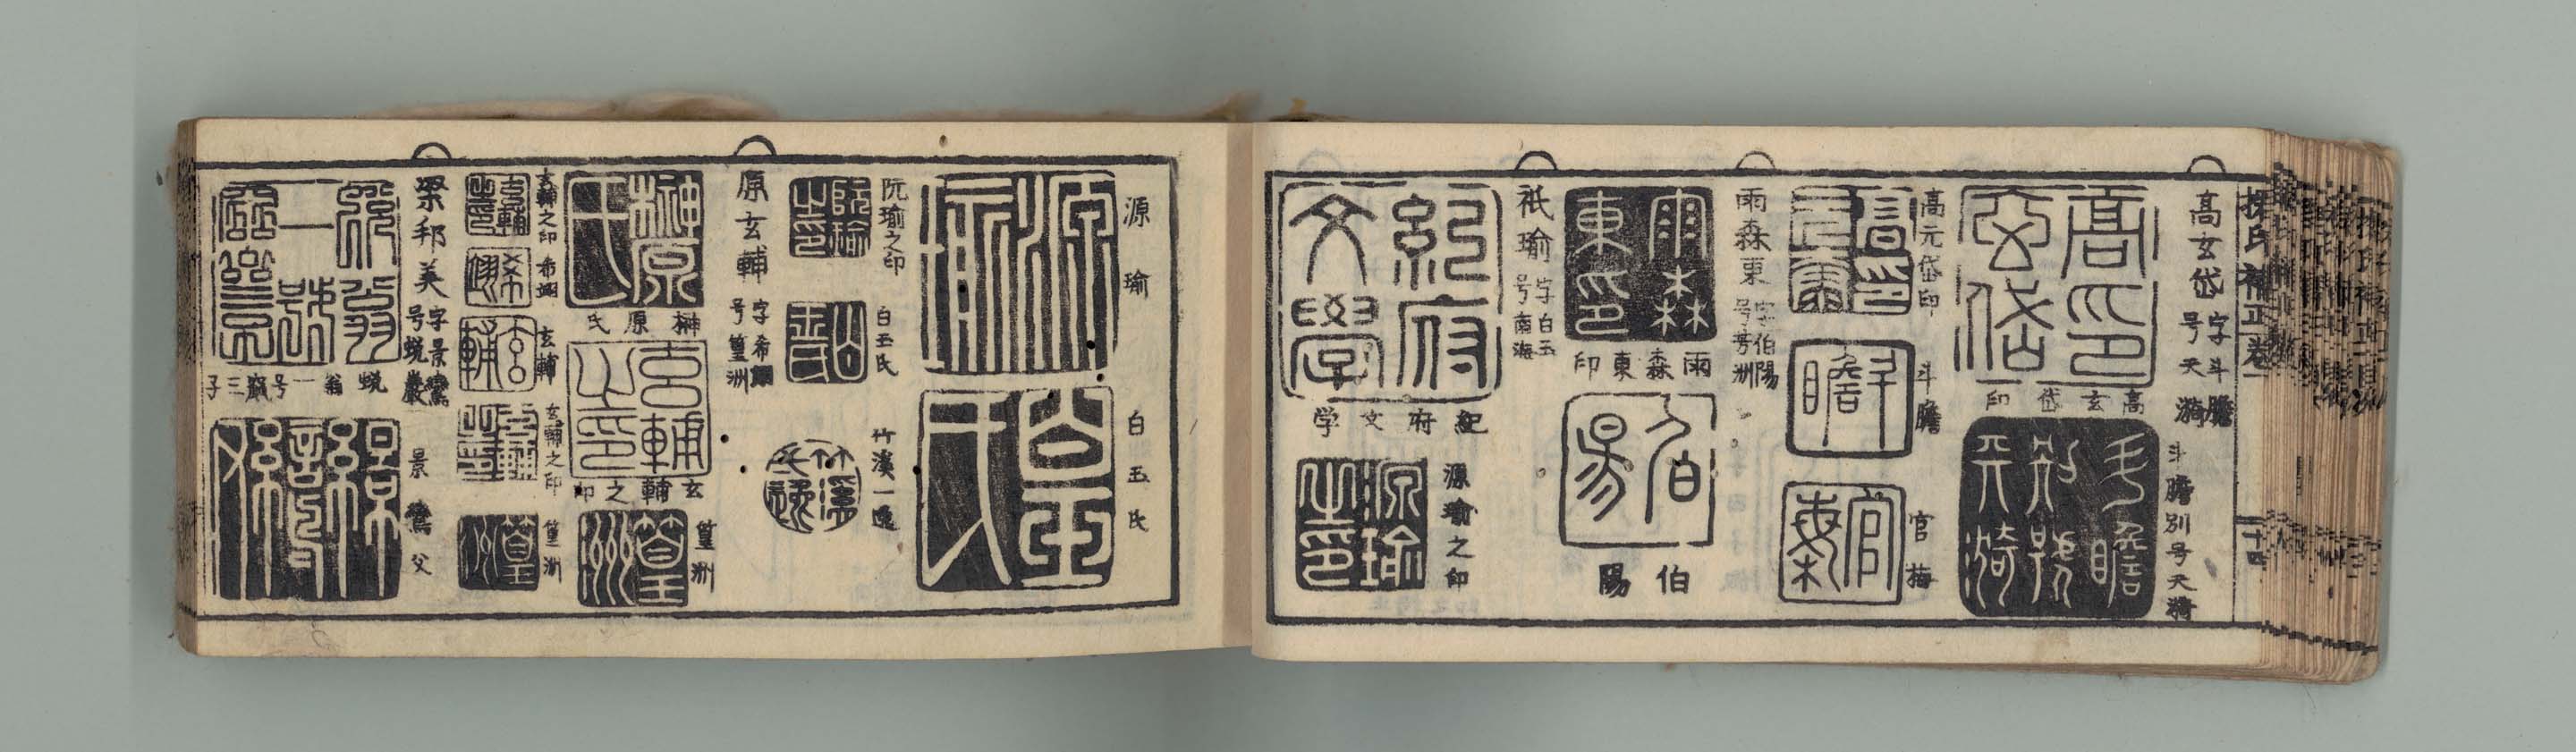 高玄岱 字斗膽 号天漪
高玄岱印
斗膽別号天漪
高元岱印
斗膽
官梅
雨森東 字伯陽 号芳洲
雨森東印
伯陽
祇瑜 字白玉 号南海
紀府文学
源瑜之印
源瑜
白玉氏
阮瑜之印
白玉氏
竹溪一逸
原玄輔 字希翊 号篁洲
榊原氏
玄輔之印
篁洲
玄輔之印
希翊
玄輔
玄輔之印
篁洲
梁邦美 字景鸞 号蛻巖
蛻翁一号龐三子
景鸞父